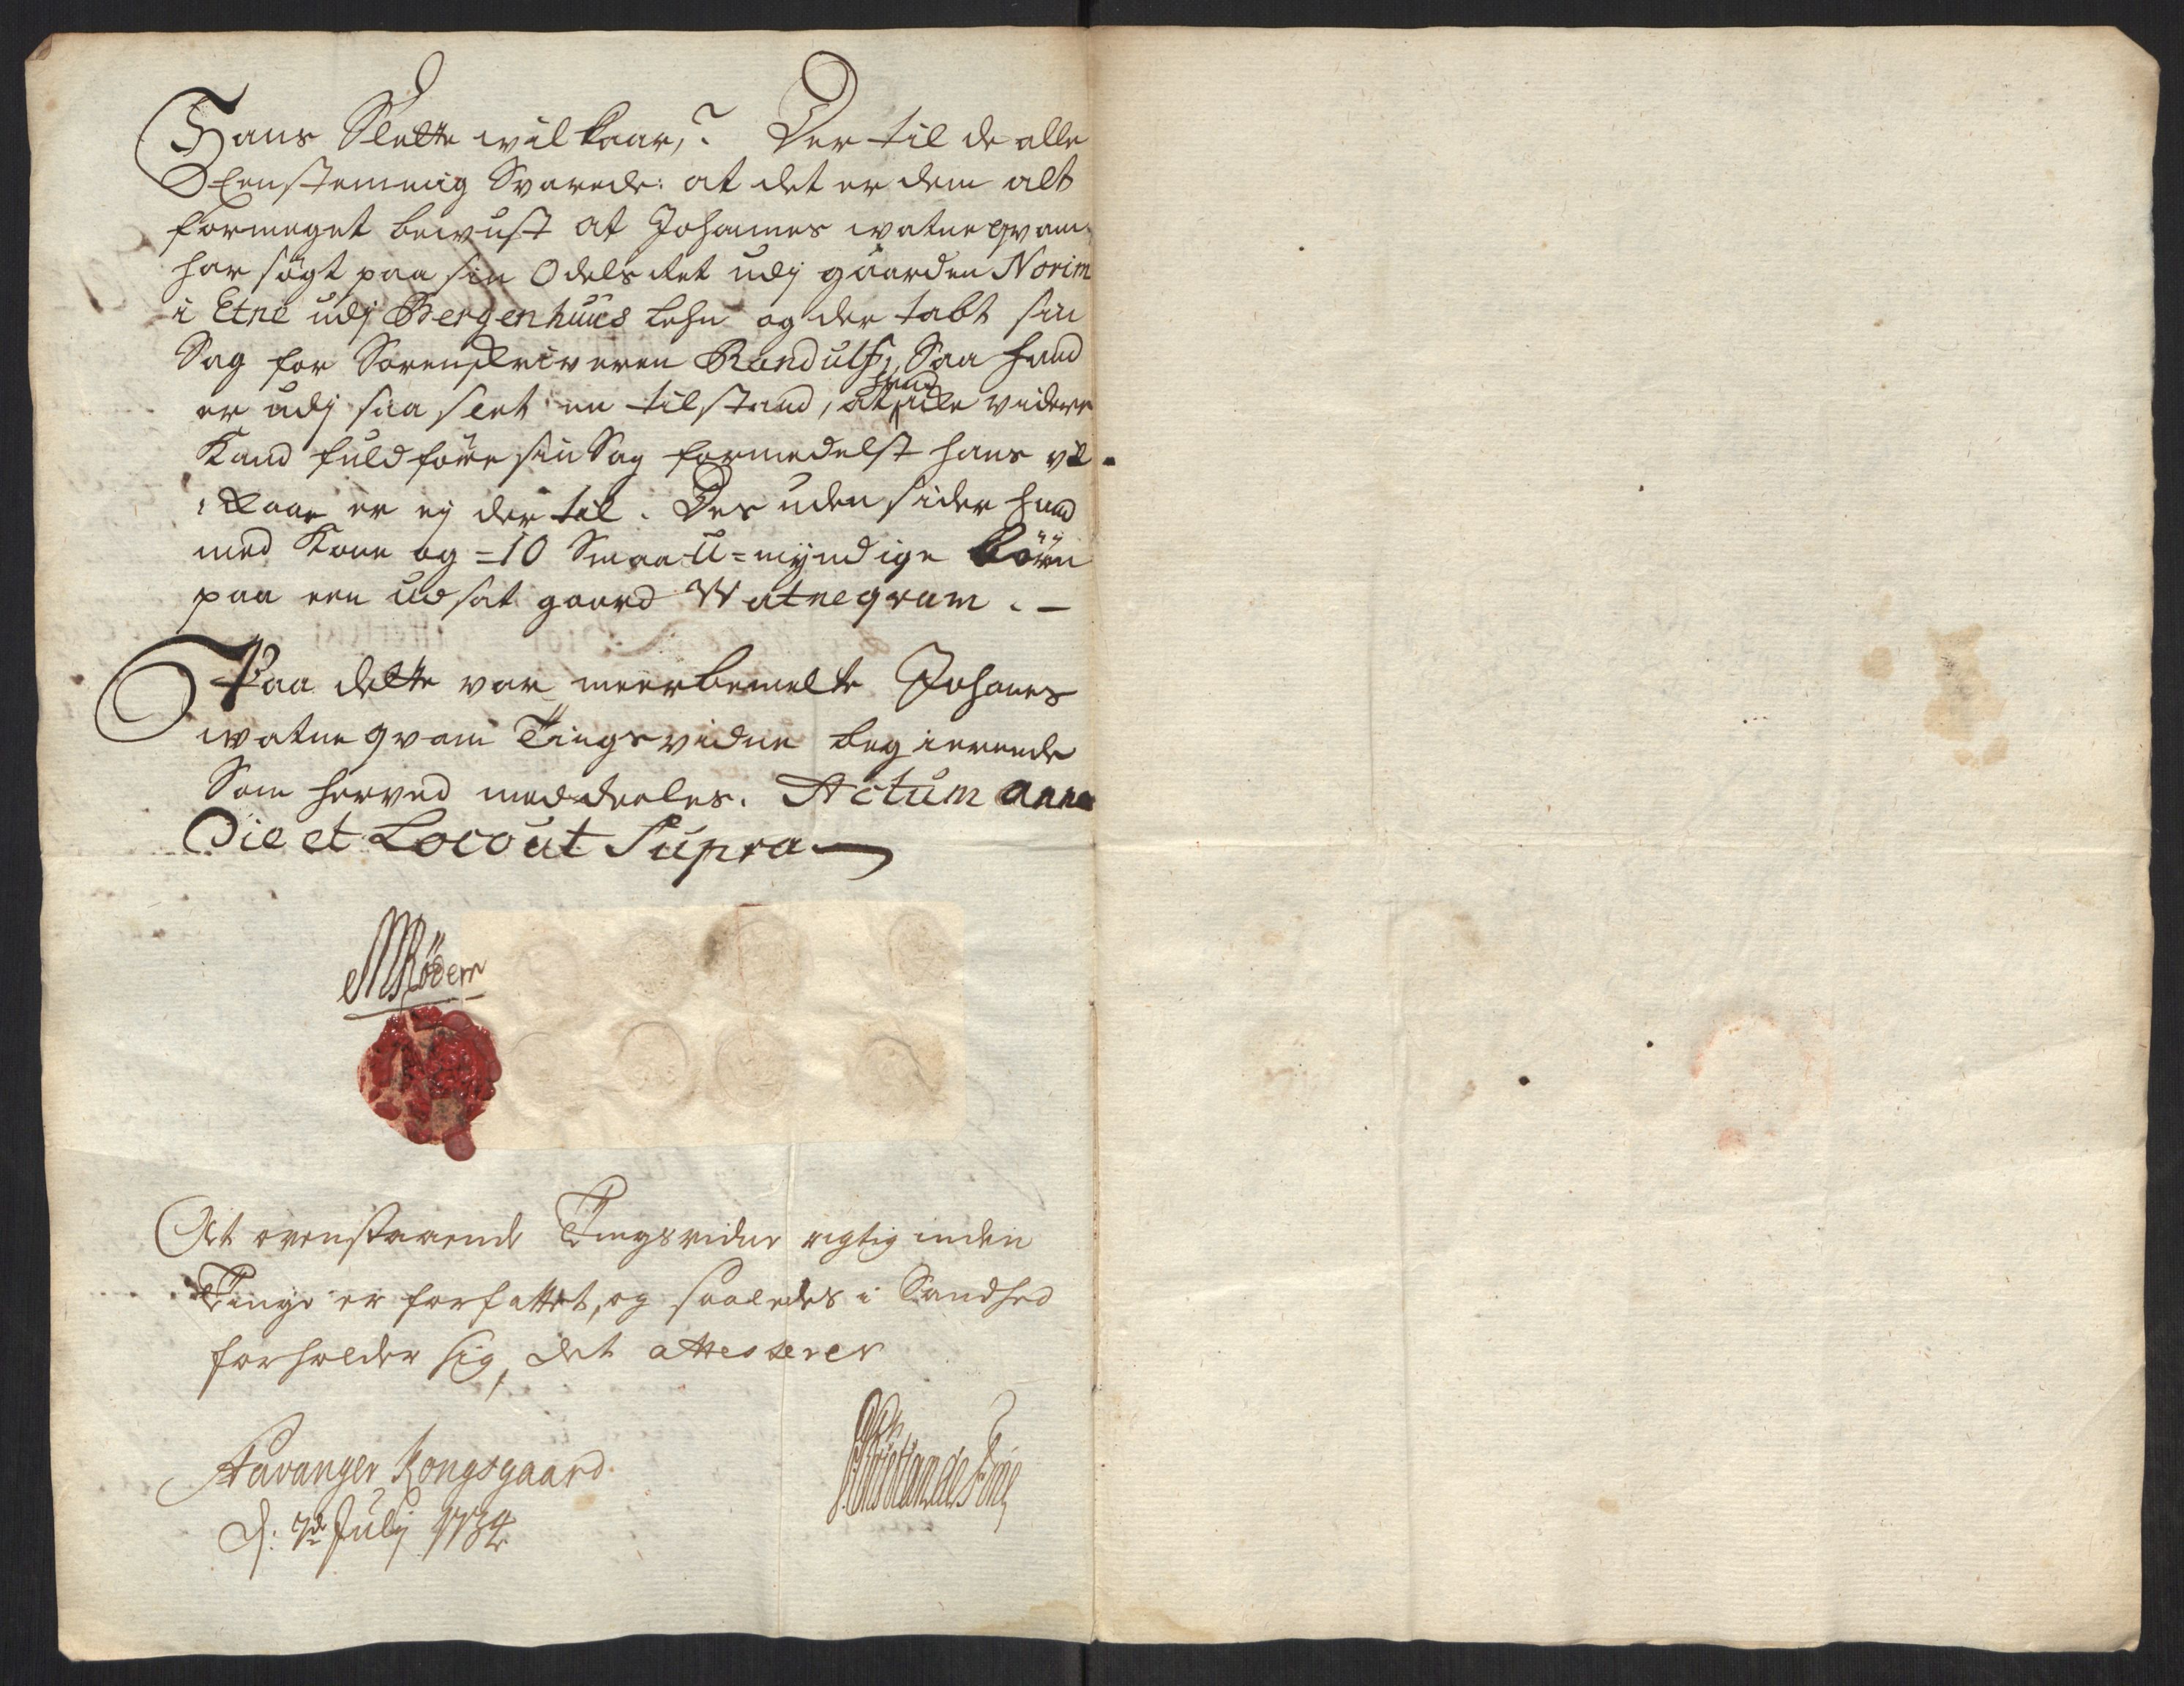 Hans Slette wilkaar,? Der til de alle
Eenstemmig Svarede: at det er dem alt
formeget bewust at Johannes watneqvam
har søgt paa sin Odels Ret udj gaarden Norim
i Etne udj Bergenhuus Lehn og der tabt sin
Sag for Sorenskriveren Randulf, Saa hand
er udj saa slet en tilstand, at hand icke videre
Kand fuldføre sin Sag formedelst hans vil-
kaar er ej der til. Des uden sider hand
med Kone og =10 Smaa U=myndige børn
paa een udsat gaard Watneqvam . –
Paa dette var meerbemelte Johanes
watneqvam Tingsvidne begierende
Som herved meddeeles. Actum anno
Die et Loco ut Supra
At ovenstaaende Tingsvidne rigtig inden
Tinge er forfattet, og saaledes i Sandhed
forholder sig, det attesterer
Stavanger Kongsgaard
d: 7de Julij 1734